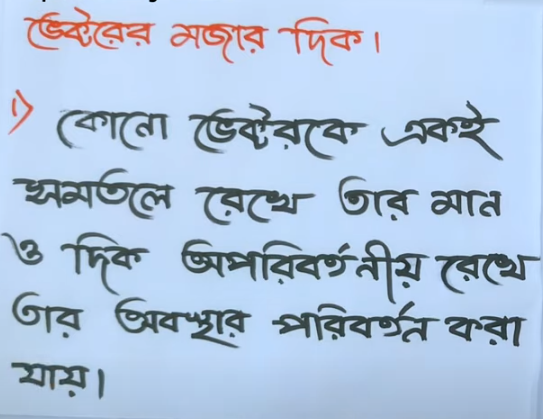 ভেক্টরের মজার দিক।
১) কোনো ভেক্টরকে একই
সমতলে রেখে তার মান
ও দিক অপরিবর্তনীয় রেখে
তার অবস্থার পরিবর্তন করা
যায়।